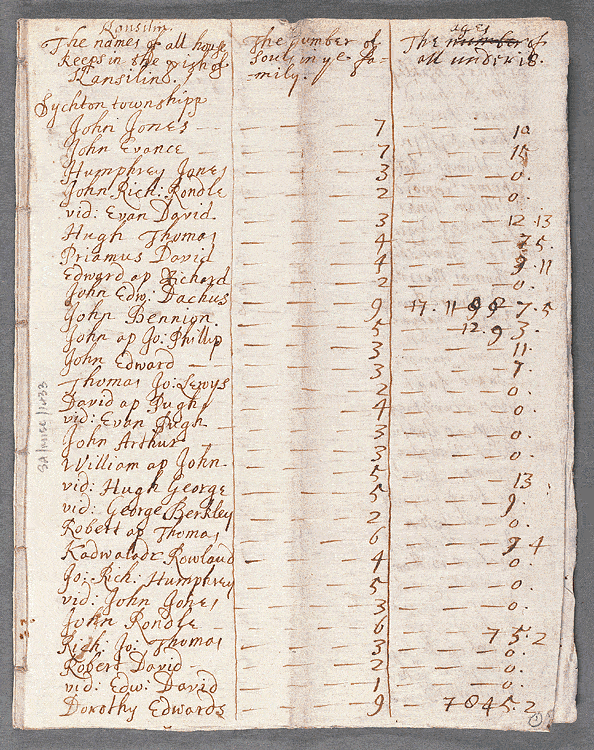 Lansilin
The names of all house The number of The number ages of
keeps in the p'ish of Souls in ye fa- all under 18.
Lansilind. mily.
Sychton townshipp
John Jones — 7 — 10
John Evance — 7 — 15
Humphrey Jones — 3 — 0.
John Rich: Rondle — 2 — 0.
vid: Evan David — 3 — 12 . 13
Hugh Thomas — 4 — 7 . 5.
Priamus David — 4 — 9 . 11
Edward ap Richard — 2 — 0.
John Edw: Dachus — 9 — 17 . 11 9 8 7 . 5
John Bennion — 5 — 12 . 9 3.
John ap Jo: Phillip — 3 — 11.
John Edward — 3 — 7.
Thomas Jo: Lewys — 2 — 0.
David ap Pugh — 4 — 0.
vid: Evan Pugh — 3 — 0.
John Arthur — 3 — 0.
William ap John — 5 — 13
vid: Hugh George — 5 — 9.
vid: George Berkley — 2 — 0.
Robert ap Thomas — 6 — 9 4
Kadwaladr Rowland — 4 — 0.
Jo: Rich: Humphrey — 5 — 0.
vid: John Jones — 3 — 0.
John Rondle — 6 — 7 5. 2
Rich: Jo: Thomas — 3 — 0.
Robert David — 2 — 0.
vid: Edw: David — 1 — 0.
Dorothy Edwards — 9 — 7 8 4 5. 2